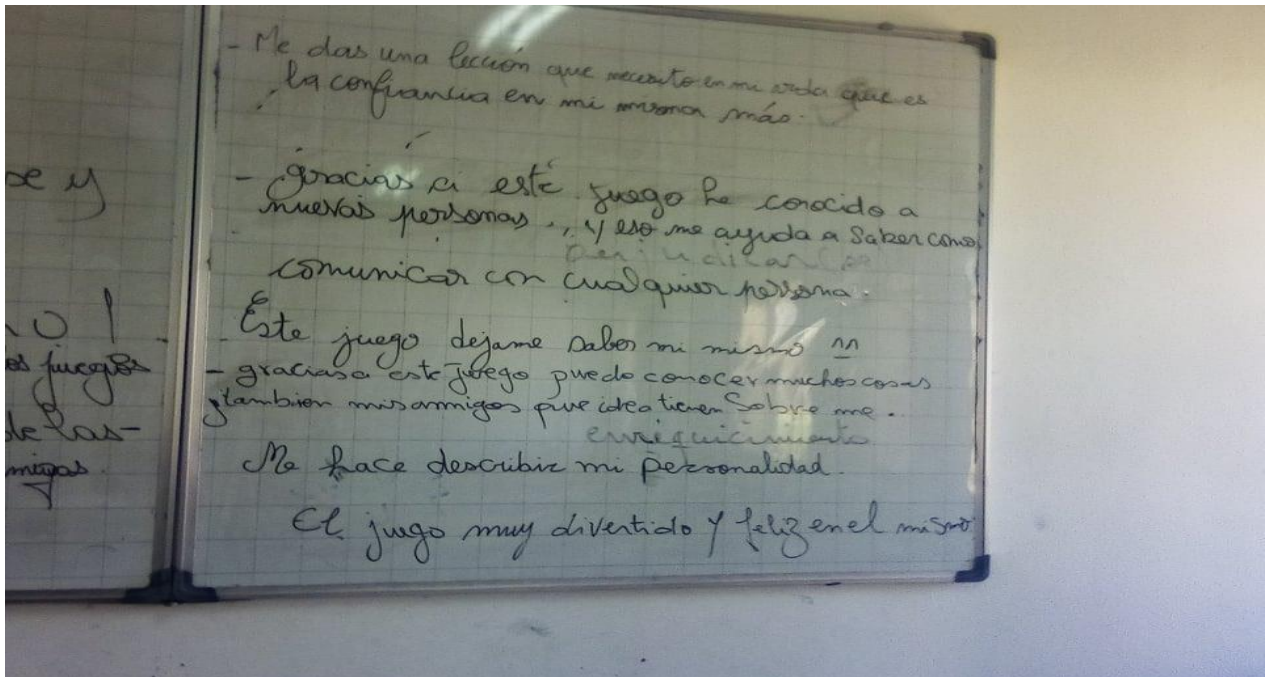 se y
o !
os juegos
de las-
migas.
- Me das una lección que necesito en mi vida que es
la confiansia en mi misma más.
- gracias a este juego he conocido a
nuevas personas., y eso me ayuda a saber como
comunicar con cualquier persona.
- Este juego dejame saber mi mismo ^^
- gracias a este juego puedo conocer muchos cosas
y tambien mis amigos que idea tienen sobre me.
enriquicimiento
Me hace describir mi personalidad.
El juego muy divertido y feliz en el mismo